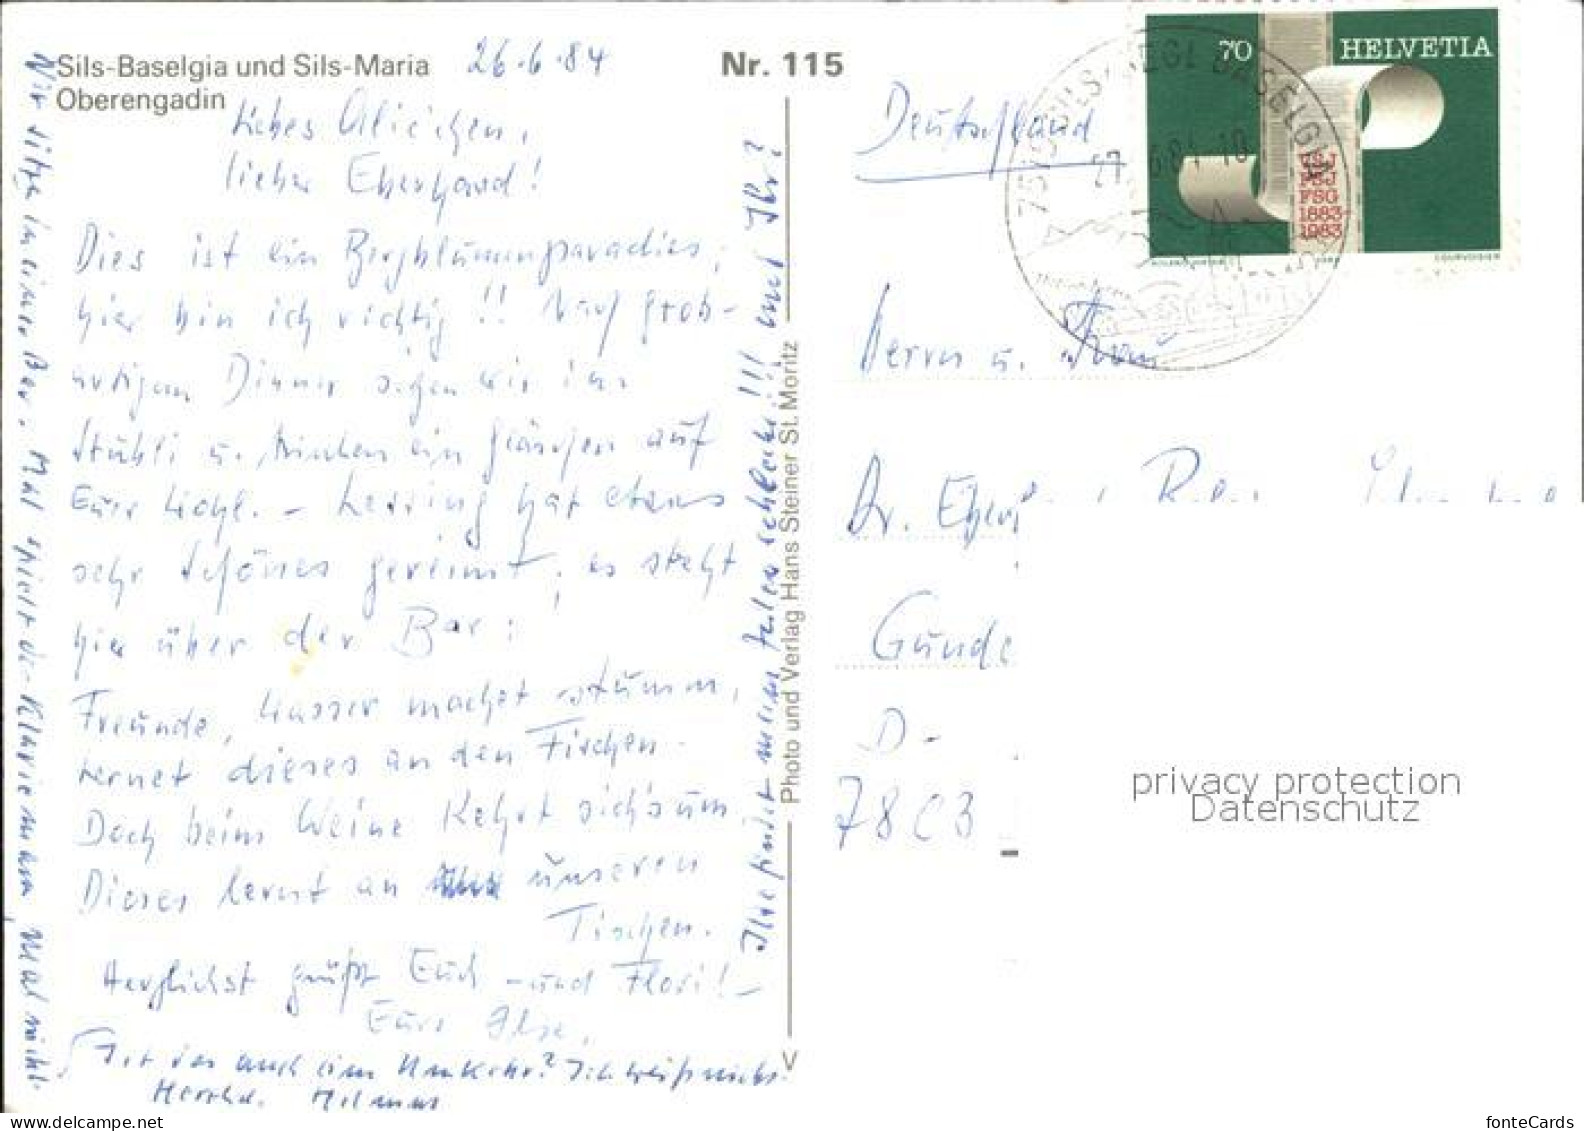 Sils-Baselgia und Sils-Maria
Oberengadin
26.6.84
Nr. 115
lieber Eberhard!
Dies ist ein Bergblumenparadies,
hier bin ich richtig!! Nach groß-
artigem Dinner sitzen wir im
Stübli u. trinken ein Gläschen auf
Euer Wohl. – Lessing hat etwas
sehr Schönes gereimt, es steht
hier über der Bar:
Freunde, Wasser machet stumm,
lernet dieses an den Fischen.
Doch beim Weine kehrt sich's um
Dieses lernt an unseren
Tischen.
Herzlichst grüßt Euch – und Flori! –
Eure Ilse.
Ist das auch ein Umkehr? Ich weiß nicht.
Herzlich. Helmut
Wir sitzen in einer Bar. Mal spielt der Klaviermann, mal nicht.
Ilse findet meine Zeilen schlecht!!! und Ihr?
Photo und Verlag Hans Steiner St. Moritz
V
70
HELVETIA
FSG
1883-
1983
COURVOISIER
Deutschland
Herrn u. Frau
Dr.
Gunde
D-
privacy protection
Datenschutz
fonteCards